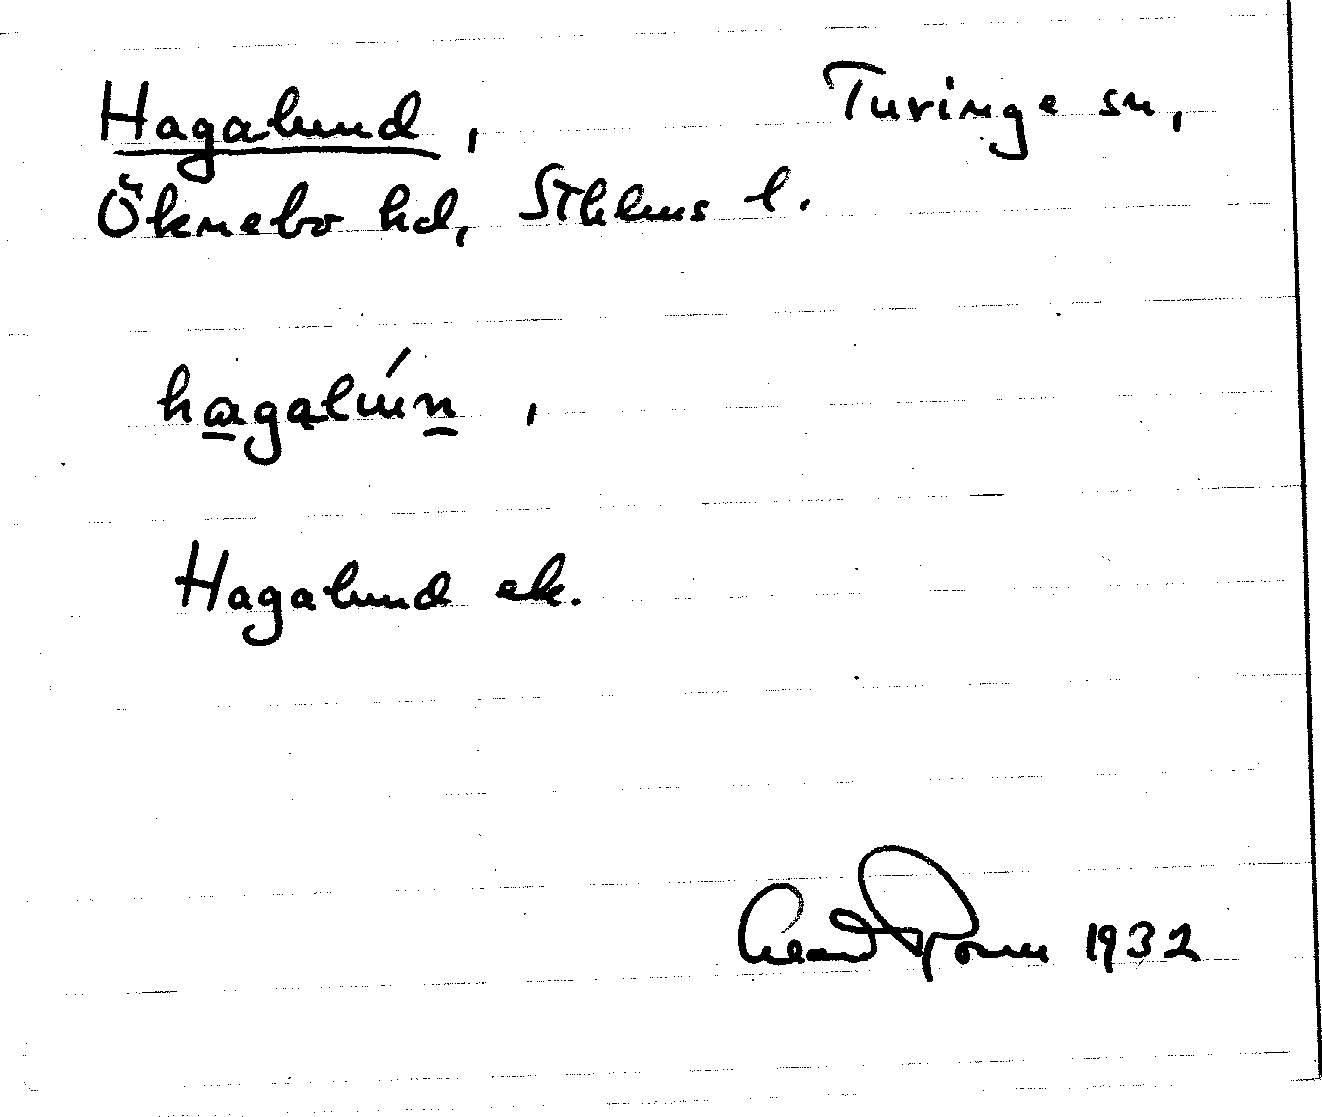 Hagalund, Turinge sn,
Öknebo hd, Sthlms l.
hagalún,
Hagalund ek.
1932